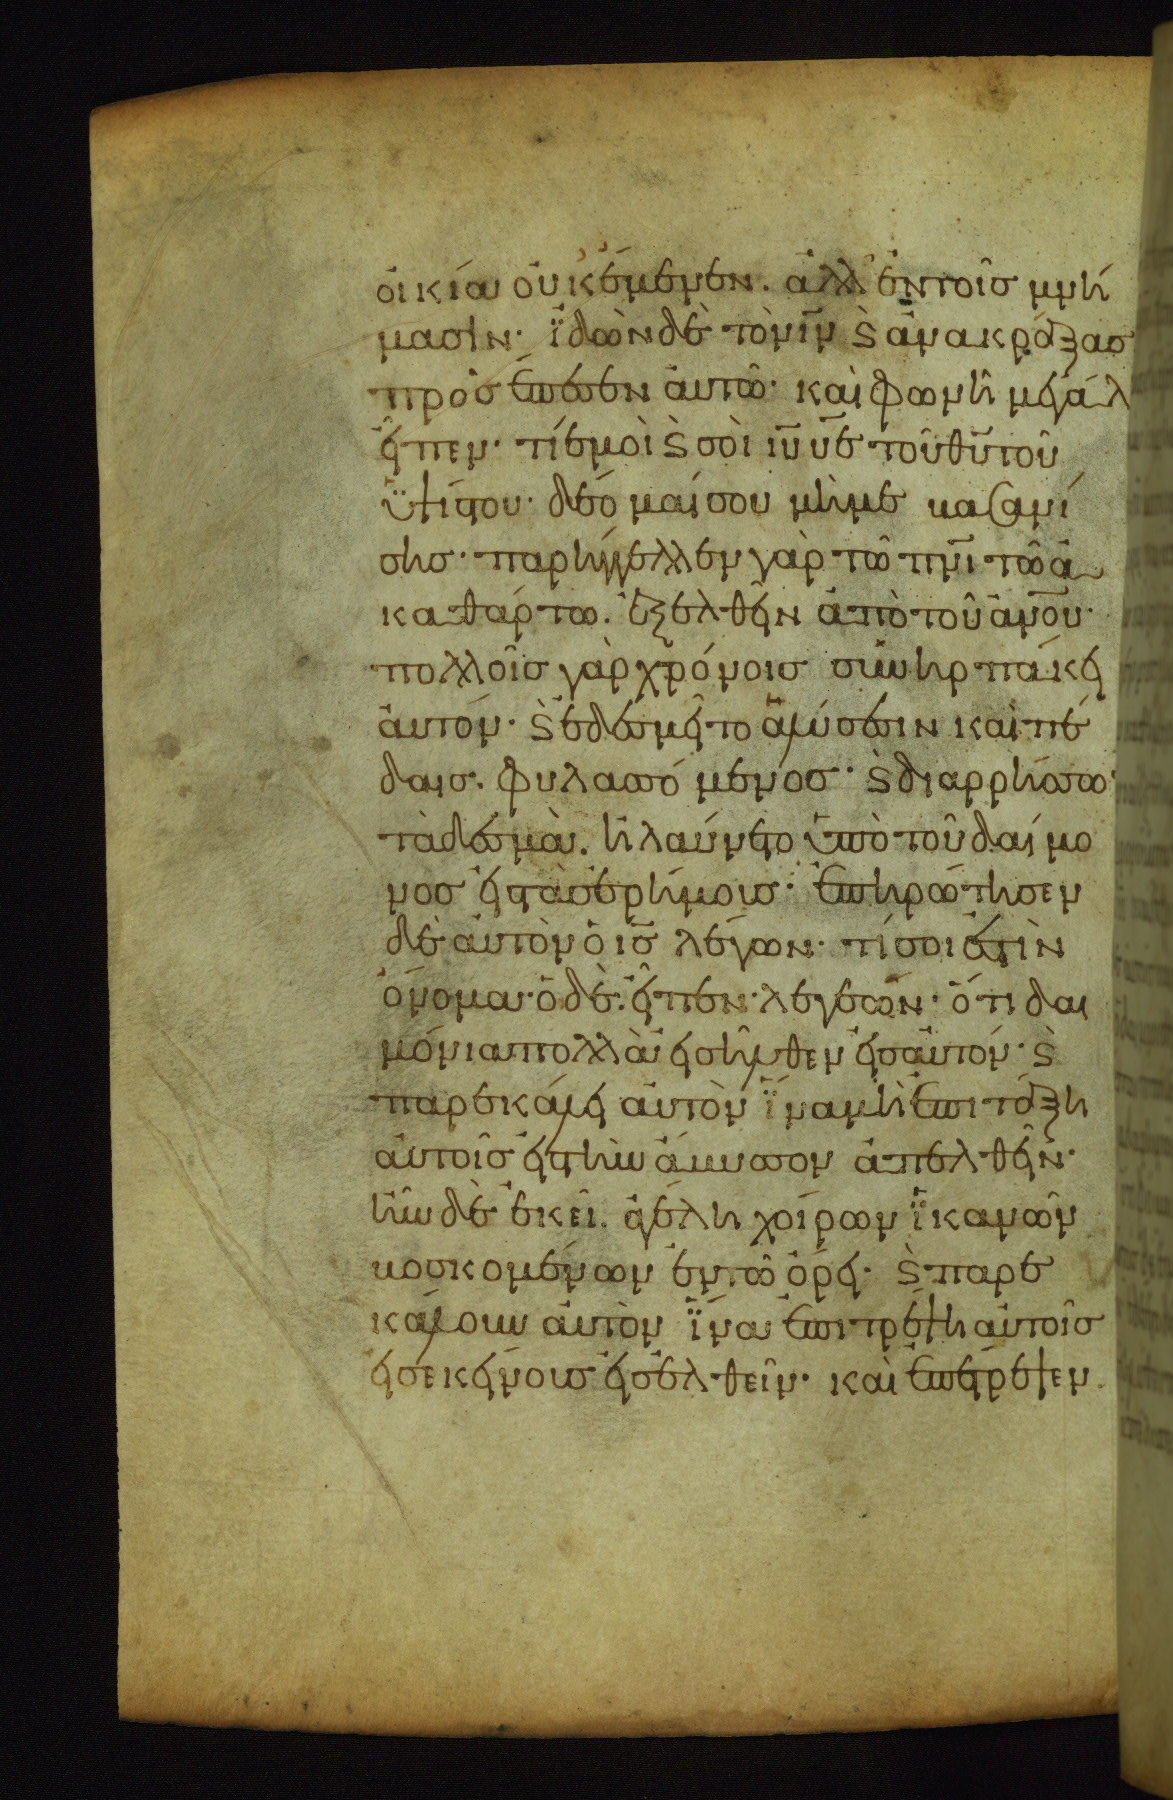 οἰκία οὐκ ἔμενεν. ἀλλ' ἐν τοῖς μνή
μασιν· ἰ̈δὼν δὲ τὸν ι̅ν̅ ϗ ἀνακράξας
προσέπεσεν αὐτῶ· καὶ φωνῆ μεγάλ
εἶπεν· τί ἐμοὶ ϗ σοὶ ι̅υ̅ υ̅ε̅ τοῦ θ̅υ̅ τοῦ
ὑ̈ψίστου· δέομαί σου μή με βασανί
σης· παρήγγελλεν γὰρ τῶ π̅ν̅ι̅ τῶ ἀ
καθάρτω. ἐξελθεῖν ἀπὸ τοῦ α̅ν̅ο̅υ̅·
πολλοῖς γὰρ χρόνοις συνηρπάκει
αὐτόν· ϗ ἐδεσμεῖτο ἁλύσεσιν καὶ πέ
δαις. φυλασσόμενος· ϗ διαρρήσσω
τὰ δεσμὰ. ἠλαύνετο ὑπὸ τοῦ δαίμο
νος εἰς τὰς ἐρήμοις· ἐπηρώτησεν
δὲ αὐτὸν ὁ ι̅ς̅ λέγων· τί σοι ἐστὶν
ὄνομα· ὁ δὲ. εἶπεν· λεγεών· ὅτι δαι
μόνια πολλὰ εἰσῆλθεν εἰς αὐτόν· ϗ
παρεκάλει αὐτὸν ἵ̈να μὴ ἐπιτάξη
αὐτοῖς εἰς τὴν ἄβυσσον ἀπελθεῖν·
ἦν δὲ ἐκεῖ. ἀγέλη χοίρων ἱ̈κανῶν
βοσκομένων ἐν τῶ ὄρει· ϗ παρε
κάλουν αὐτὸν ἵ̈να ἐπιτρέψη αὐτοῖς
εἰς ἐκείνους εἰσελθεῖν· καὶ ἐπέτρεψεν